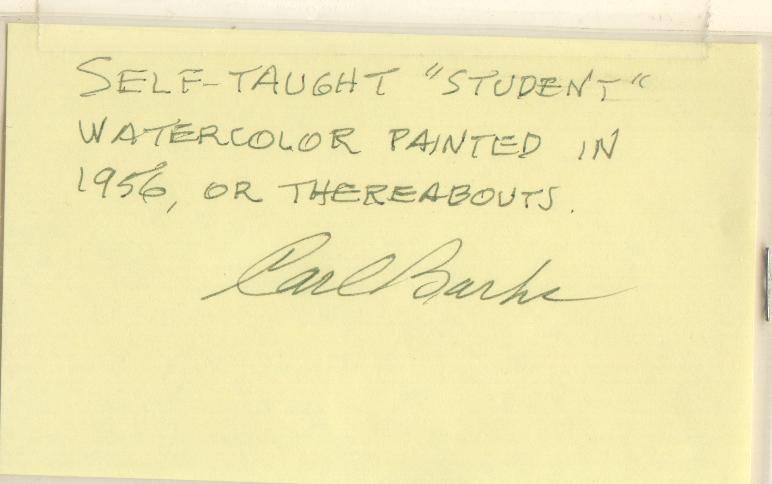 SELF-TAUGHT "STUDENT"
WATERCOLOR PAINTED IN
1956, OR THEREABOUTS.
Carl Barks